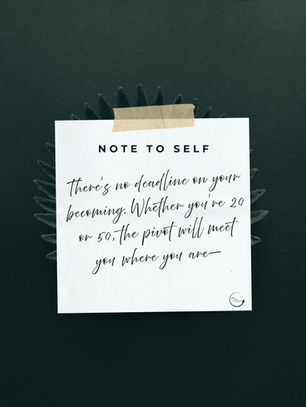 NOTE TO SELF
There's no deadline on your
becoming. Whether you're 20
or 50, the pivot will meet
you where you are—